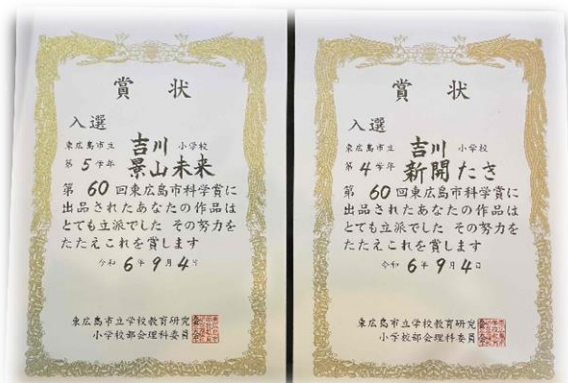 賞状
入選
東広島市立 吉川 小学校
第5学年 景山未来
第60回東広島市科学賞に
出品されたあなたの作品は
とても立派でした その努力を
たたえこれを賞します
令和6年9月4日
東広島市立学校教育研究会
小学校部会理科委員会
賞状
入選
東広島市立 吉川 小学校
第4学年 新開たき
第60回東広島市科学賞に
出品されたあなたの作品は
とても立派でした その努力を
たたえこれを賞します
令和6年9月4日
東広島市立学校教育研究会
小学校部会理科委員会